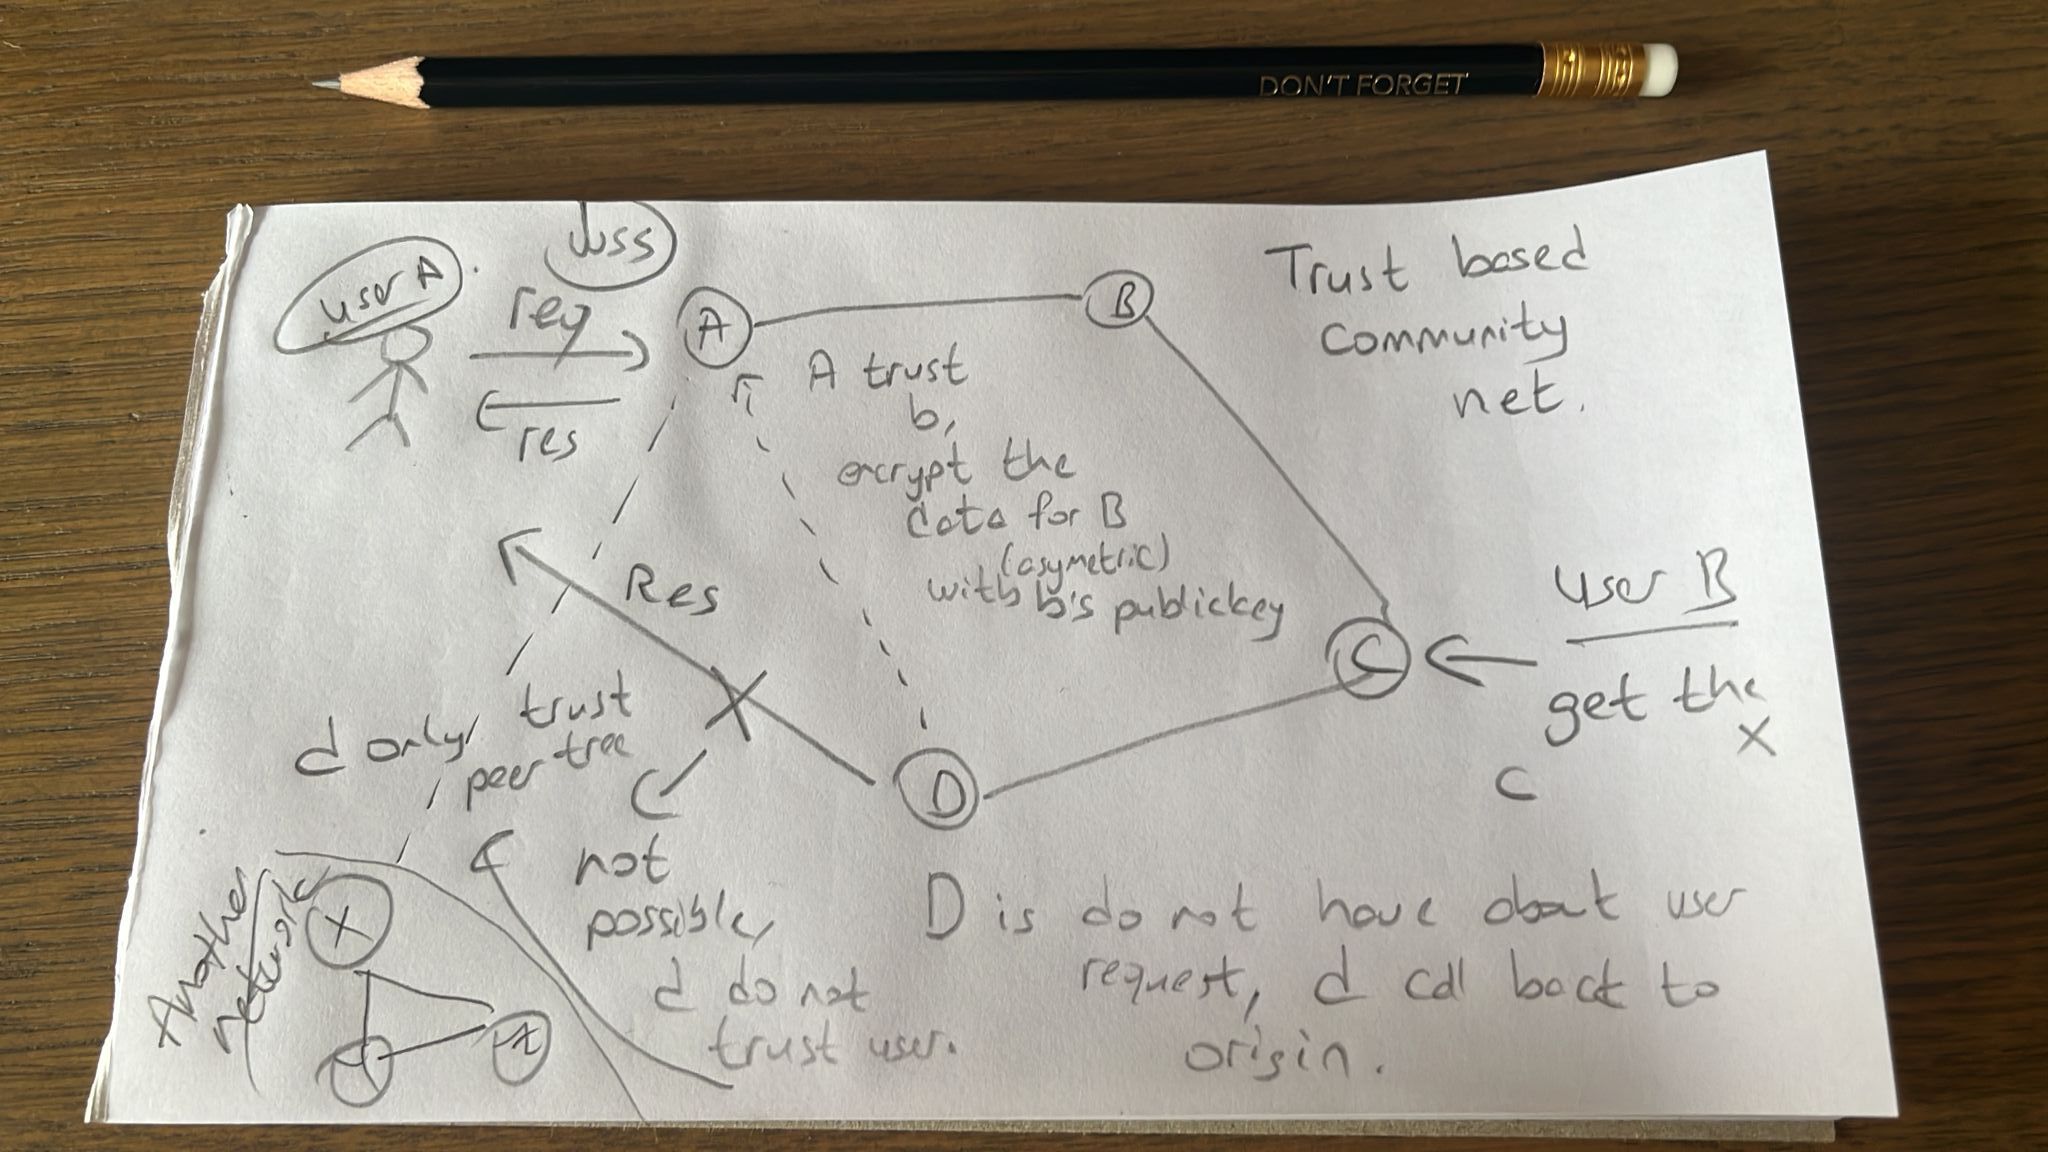 DON'T FORGET
wss
user A.
req
res
A
B
Trust based
community
net.
A trust
b,
encrypt the
data for B
(asymetric)
with b's publickey
Res
user B
get the
x
C
c
d only trust
peer tree
D
not
possible,
d do not
trust user.
D is do not have about user
request, d call back to
origin.
Another
network
X